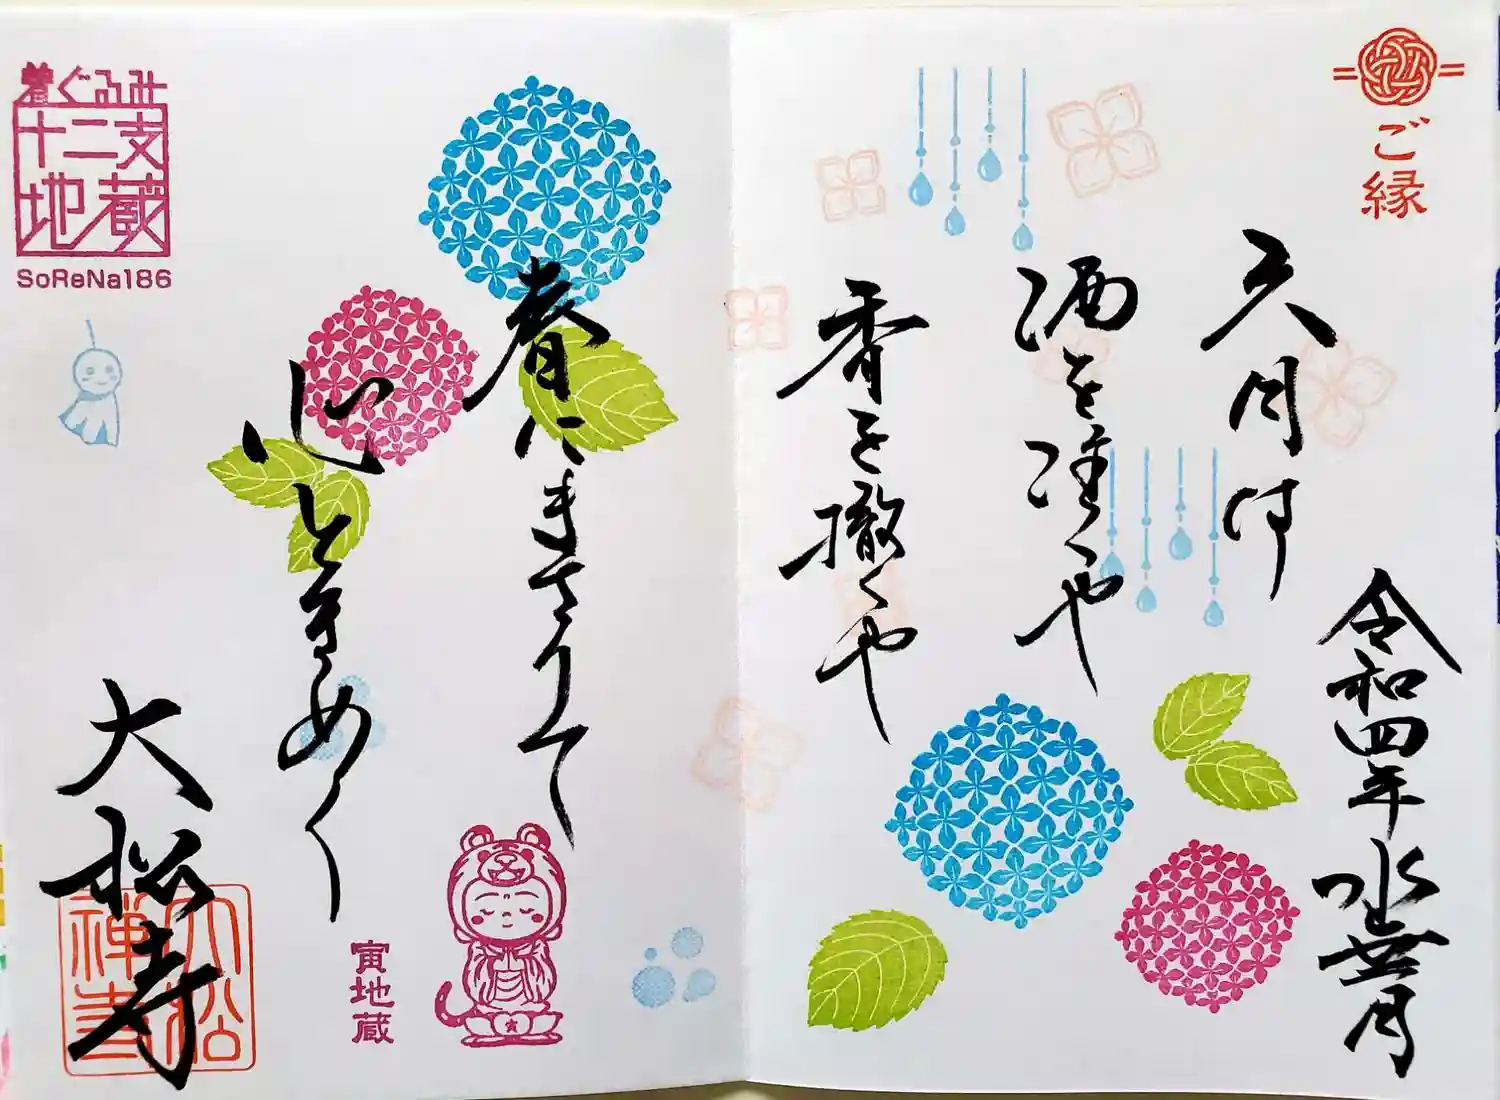 ご縁
令和四年水無月
六月は
酒を注ぐや
香を撒くや
春にまさりて
心ときめく
大松寺
着ぐるみ
十二支
地蔵
SoReNa186
寅地蔵
大松
禅寺